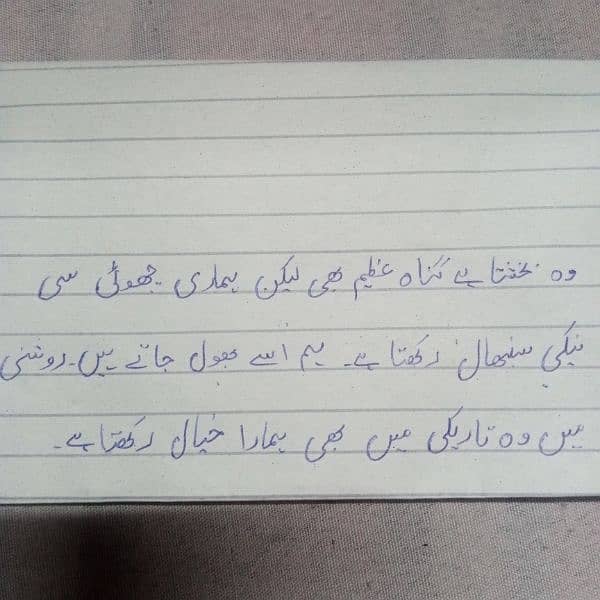 وہ بخشتا ہے گناہ عظیم بھی لیکن ہماری چھوٹی سی
نیکی سنبھال رکھتا ہے۔ ہم اسے بھول جاتے ہیں۔ روشنی
میں وہ تاریکی میں بھی ہمارا خیال رکھتا ہے۔